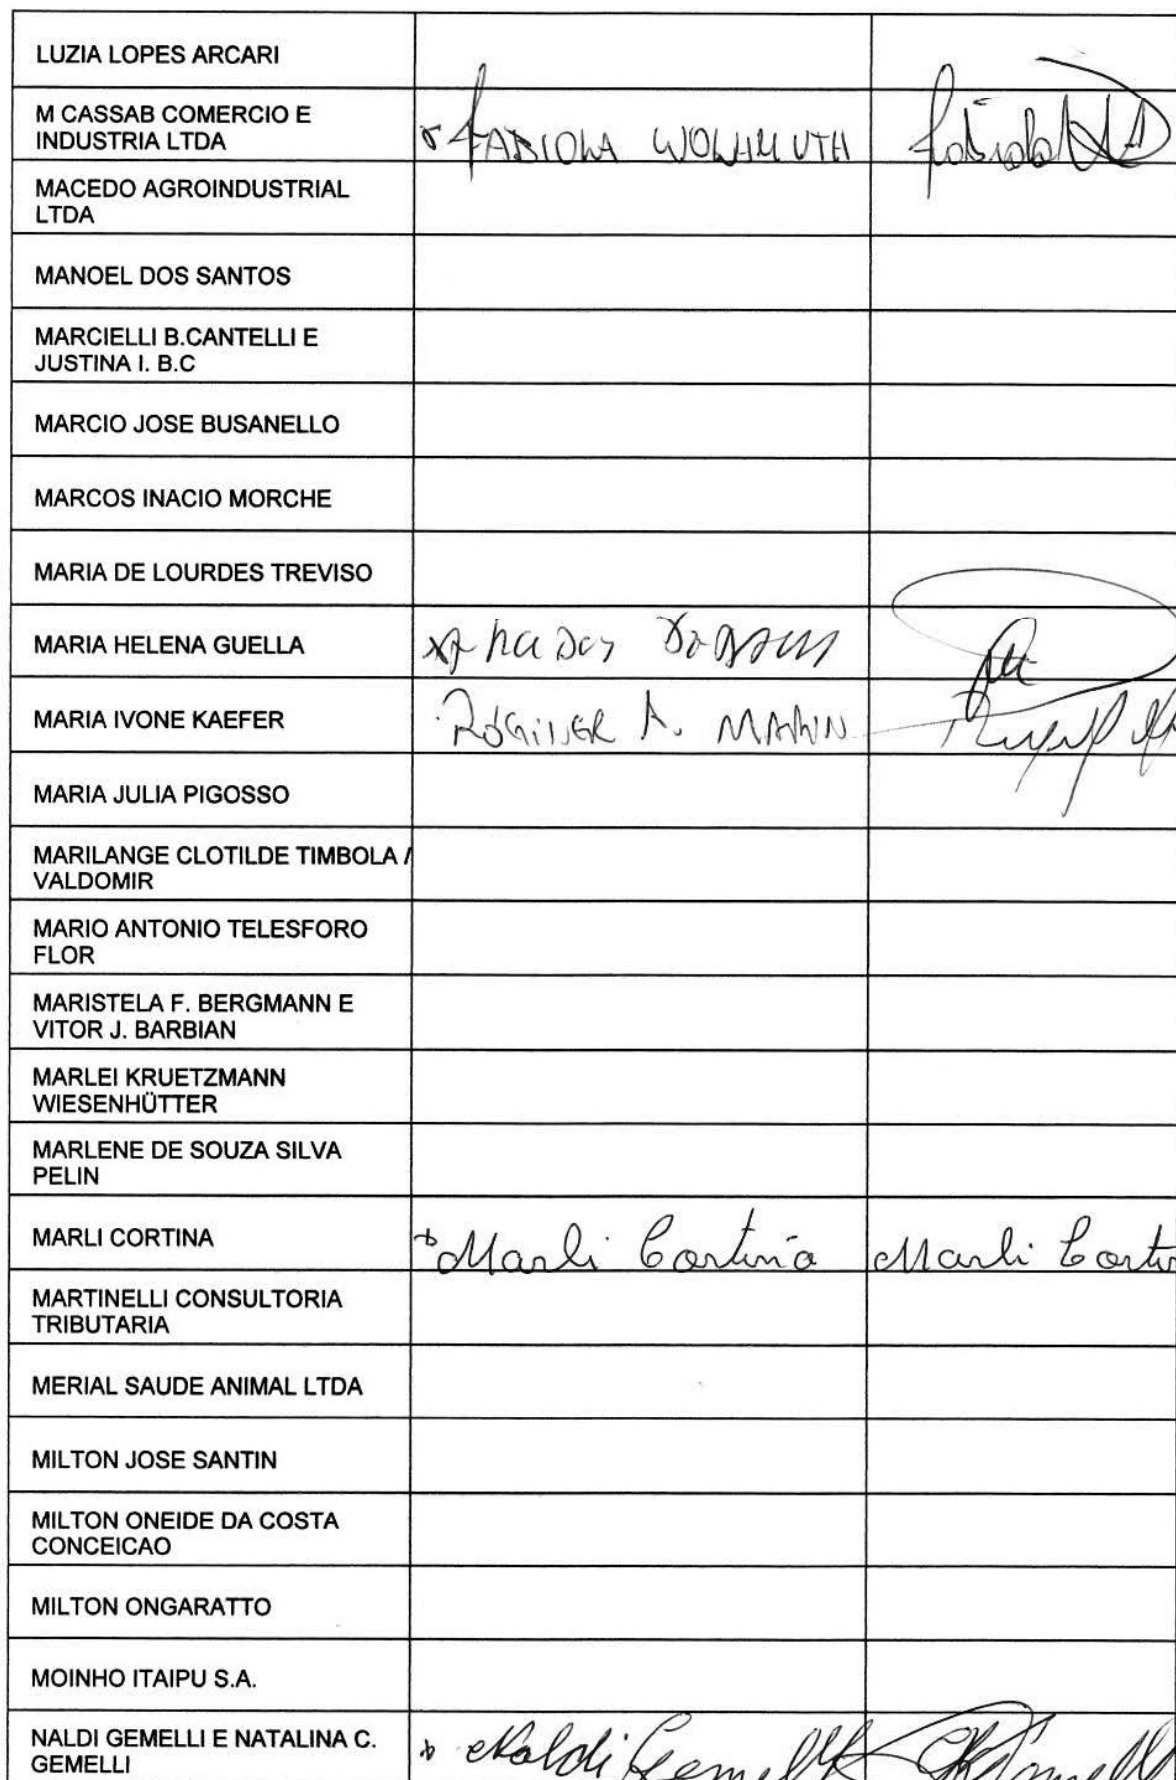 LUZIA LOPES ARCARI
M CASSAB COMERCIO E
INDUSTRIA LTDA
FABIOLA WOLHMUTH
MACEDO AGROINDUSTRIAL
LTDA
MANOEL DOS SANTOS
MARCIELLI B.CANTELLI E
JUSTINA I. B.C
MARCIO JOSE BUSANELLO
MARCOS INACIO MORCHE
MARIA DE LOURDES TREVISO
MARIA HELENA GUELLA
MARIA IVONE KAEFER
A.
MARIA JULIA PIGOSSO
MARILANGE CLOTILDE TIMBOLA /
VALDOMIR
MARIO ANTONIO TELESFORO
FLOR
MARISTELA F. BERGMANN E
VITOR J. BARBIAN
MARLEI KRUETZMANN
WIESENHÜTTER
MARLENE DE SOUZA SILVA
PELIN
MARLI CORTINA
Marli Cortina Marli
MARTINELLI CONSULTORIA
TRIBUTARIA
MERIAL SAUDE ANIMAL LTDA
MILTON JOSE SANTIN
MILTON ONEIDE DA COSTA
CONCEICAO
MILTON ONGARATTO
MOINHO ITAIPU S.A.
NALDI GEMELLI E NATALINA C.
GEMELLI
Naldi Gemelli